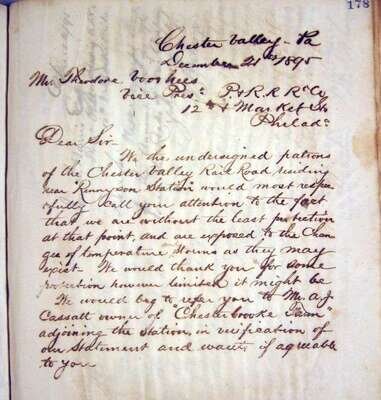 178
Chester Valley - Pa
December 21st 1895
Mr Theodore Voorhees
Vice Prest P & R. R Rd Co
12th & Market Sts
Philada
Dear Sir-
We the undersigned patrons
of the Chester Valley Rail Road residing
near Rennyson Station would most respec
fully call your attention to the fact
that we are without the least protection
at that point, and are exposed to the Chan
ges of temperature storms as they may
exist. We would thank you for some
protection however limited it might be
We would beg to refer you to Mr. A. J.
Cassatt owner of "Chesterbrooke Farm"
adjoining the Station, in verification of
our Statement and waits if agreeable
to you